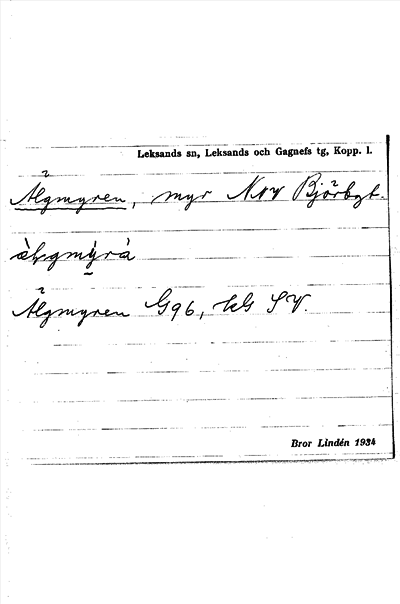 Leksands sn, Leksands och Gagnefs tg, Kopp. l.
Älgmyren, myr NNV Björbgt.
Älgmyren G96, kb SV.
Bror Lindén 1934